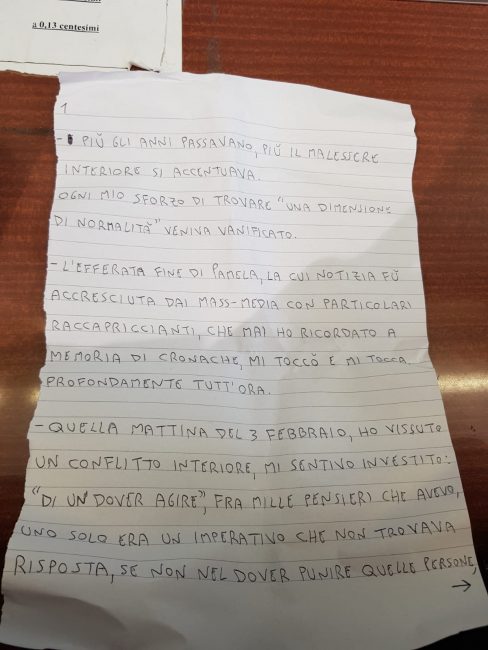 a 0,13 centesimi
1
- PIÙ GLI ANNI PASSAVANO, PIÙ IL MALESSERE
INTERIORE SI ACCENTUAVA.
OGNI MIO SFORZO DI TROVARE "UNA DIMENSIONE
DI NORMALITÀ" VENIVA VANIFICATO.
- L'EFFERATA FINE DI PAMELA, LA CUI NOTIZIA FÙ
ACCRESCIUTA DAI MASS-MEDIA CON PARTICOLARI
RACCAPRICCIANTI, CHE MAI HO RICORDATO A
MEMORIA DI CRONACHE, MI TOCCÒ E MI TOCCA
PROFONDAMENTE TUTT'ORA.
- QUELLA MATTINA DEL 3 FEBBRAIO, HO VISSUTO
UN CONFLITTO INTERIORE, MI SENTIVO INVESTITO:
"DI UN DOVER AGIRE", FRA MILLE PENSIERI CHE AVEVO,
UNO SOLO ERA UN IMPERATIVO CHE NON TROVAVA
RISPOSTA, SE NON NEL DOVER PUNIRE QUELLE PERSONE,
→